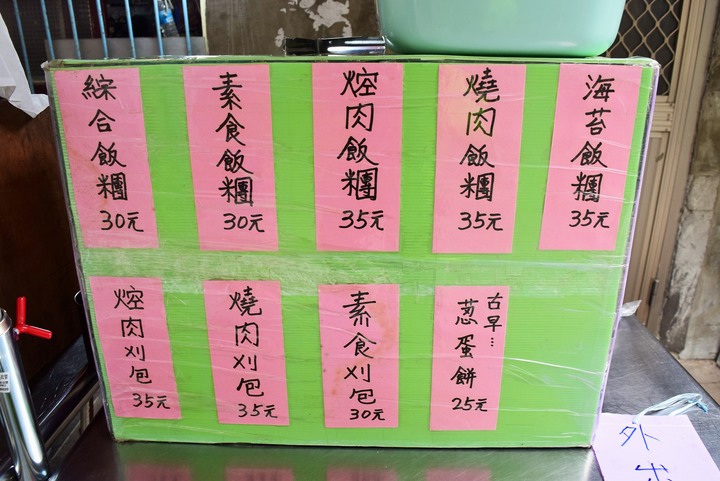 綜合飯糰
30元
素食飯糰
30元
焢肉飯糰
35元
燒肉飯糰
35元
海苔飯糰
35元
焢肉刈包
35元
燒肉刈包
35元
素食刈包
30元
古早…
蔥蛋餅
25元
外